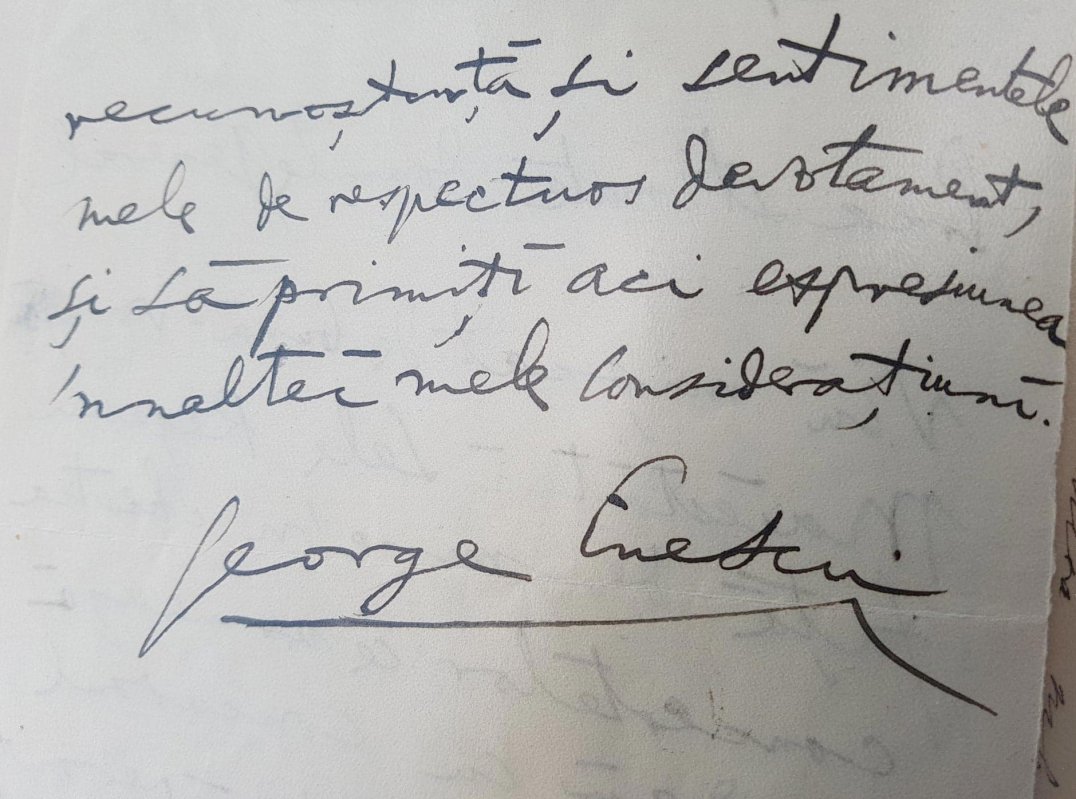 recunoștință și sentimentele
mele de respectuos devotament,
și să primiți aci expresiunea
'nnaltei mele considerațiuni.
George Enescu